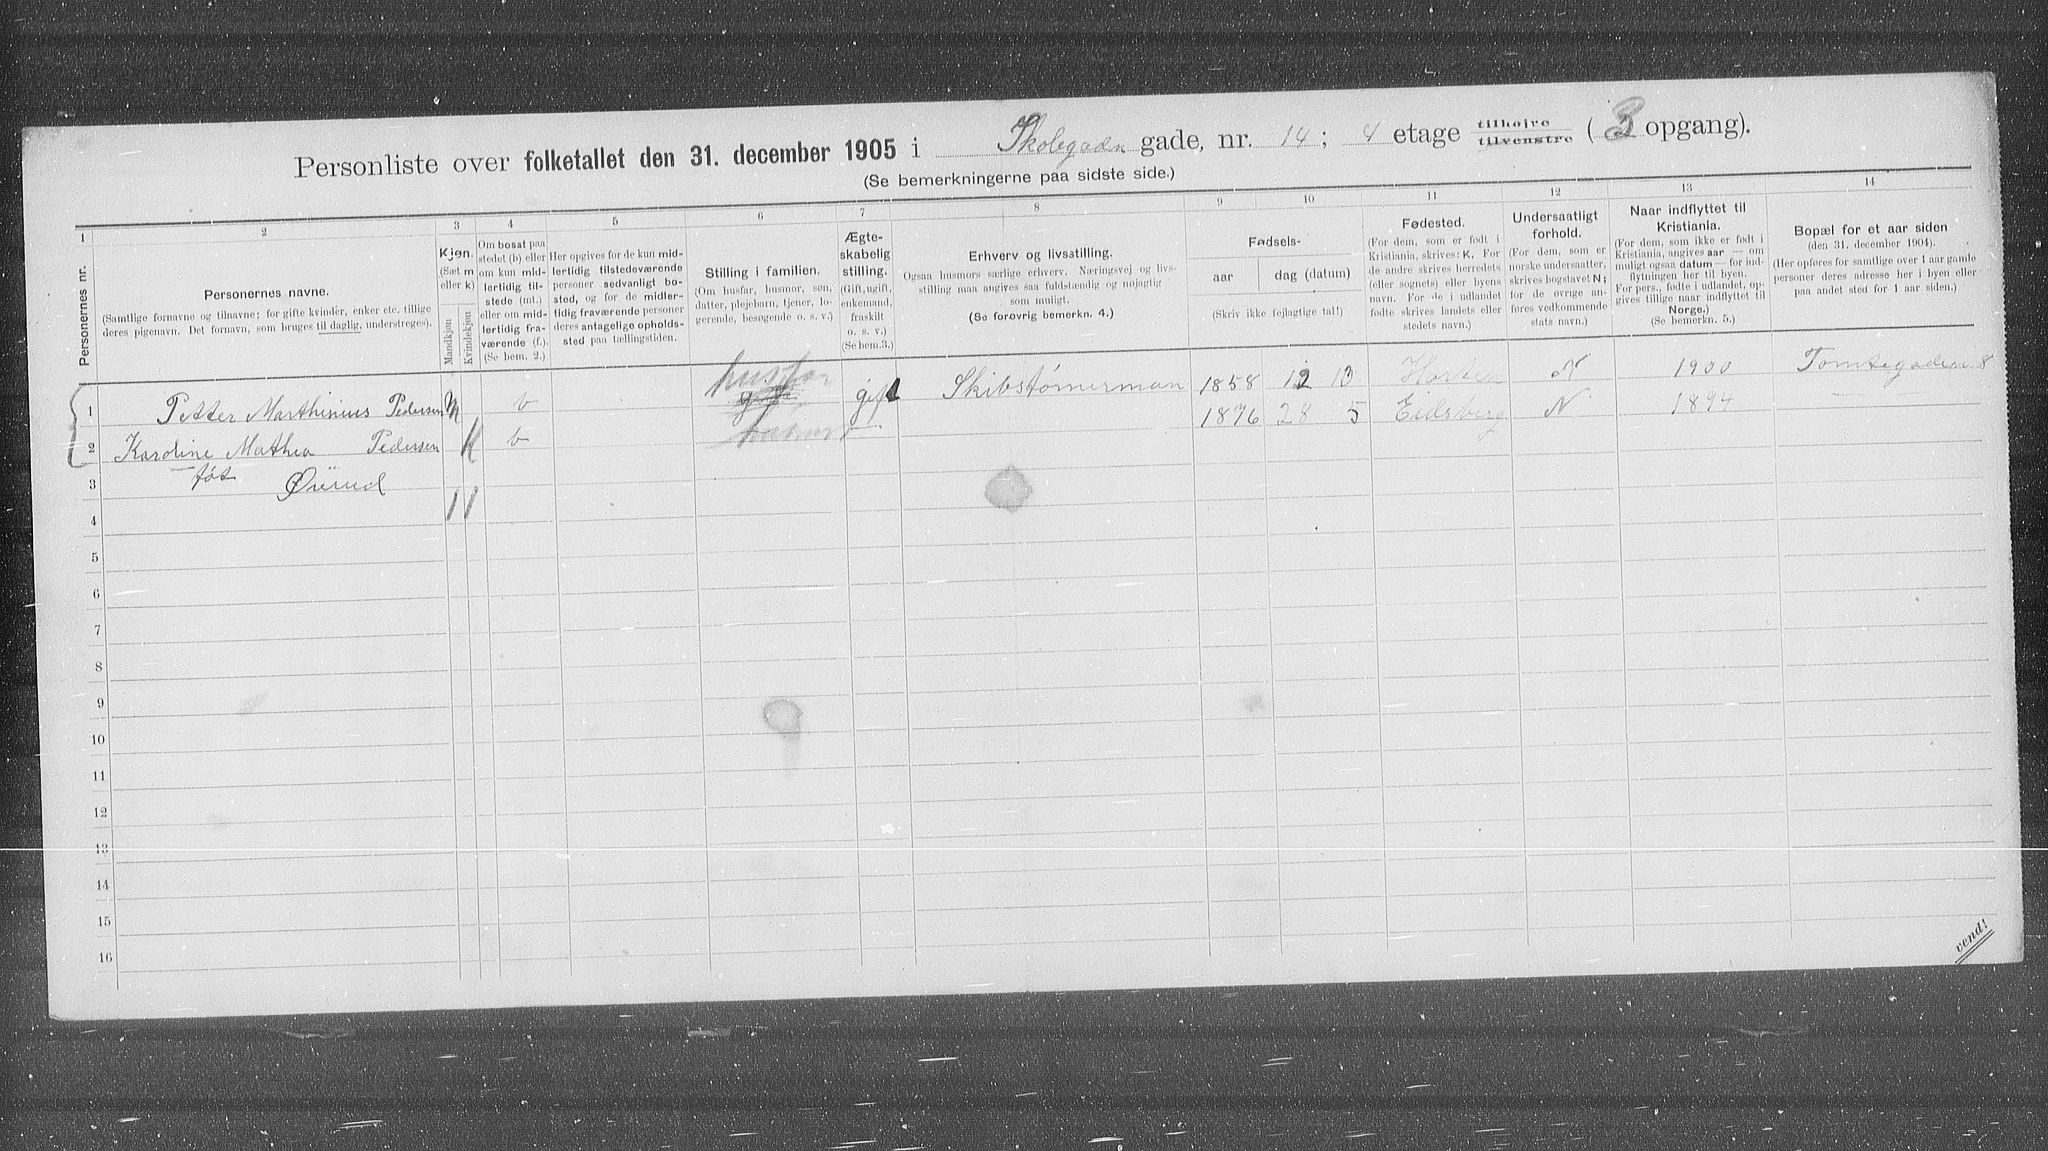 Personliste over folketallet den 31. december 1905 i Skolegadn gade, nr. 14; 4 etage tilhøjre tilvenstre (3 opgang).
(Se bemerkningerne paa sidste side.)
1 2 3 4 5 6 7 8 9 10 11 12 13 14
Personernes nr.
Personernes navne.
(Samtlige fornavne og tilnavne; for gifte kvinder, enker etc. tillige
deres pigenavn. Det fornavn, som bruges til daglig, understreges).
Kjøn.
(Sæt m
eller k)
Mandkjøn
Kvindekjøn
Om bosat paa
stedet (b) eller
om kun mid-
lertidig til-
stede (mt.)
eller om mid-
lertidig fra-
værende (f.).
(Se bem. 2.)
Her opgives for de kun mid-
lertidig tilstedeværende
personer sedvanligt bo-
sted, og for de midler-
tidig fraværende personer
deres antagelige opholds-
sted paa tællingstiden.
Stilling i familien.
(Om husfar, husmor, søn,
datter, plejebarn, tjener, lo-
gerende, besøgende o. s. v.)
Ægte-
skabelig
stilling.
(Gift, ugift,
enkemand,
fraskilt
o. s. v.)
(Se bem.3.)
Erhverv og livsstilling.
Ogsaa husmors særlige erhverv. Næringsvej og livs-
stilling maa angives saa fuldstændig og nøjagtig
som muligt.
(Se forøvrig bemerkn. 4.)
Fødsels-
aar dag (datum)
(Skriv ikke fejlagtige tal!)
Fødested.
(For dem, som er født i
Kristiania, skrives: K. For
de andre skrives herredets
(eller sognets) eller byens
navn. For de i udlandet
fødte skrives landets eller
stedets navn.)
Undersaatligt
forhold.
(For dem, som er
norske undersaatter,
skrives bogstavet N;
for de øvrige an-
føres vedkommende
stats navn.)
Naar indflyttet til
Kristiania.
(For dem, som ikke er født i
Kristiania, angives aar — om
muligt ogsaa datum — for ind-
flytningen her til byen.
For pers., fødte i udlandet, op-
gives tillige naar indflyttet til
Norge.)
(Se bemerkn. 5.)
Bopæl for et aar siden
(den 31. december 1904).
(Her opføres for samtlige over 1 aar gamle
personer deres adresse her i byen eller
paa andet sted for 1 aar siden.)
1 Petter Marthinius Pedersen m b husfar gift Skibstømerman 1858 12 13 Horten N 1900 Tomtegaden 8
2 Karoline Mathea Pedersen k b husmor 1876 28 5 Eidsberg N 1894
3 føt Øierud
4
5
6
7
8
9
10
11
12
13
14
15
16
vend!